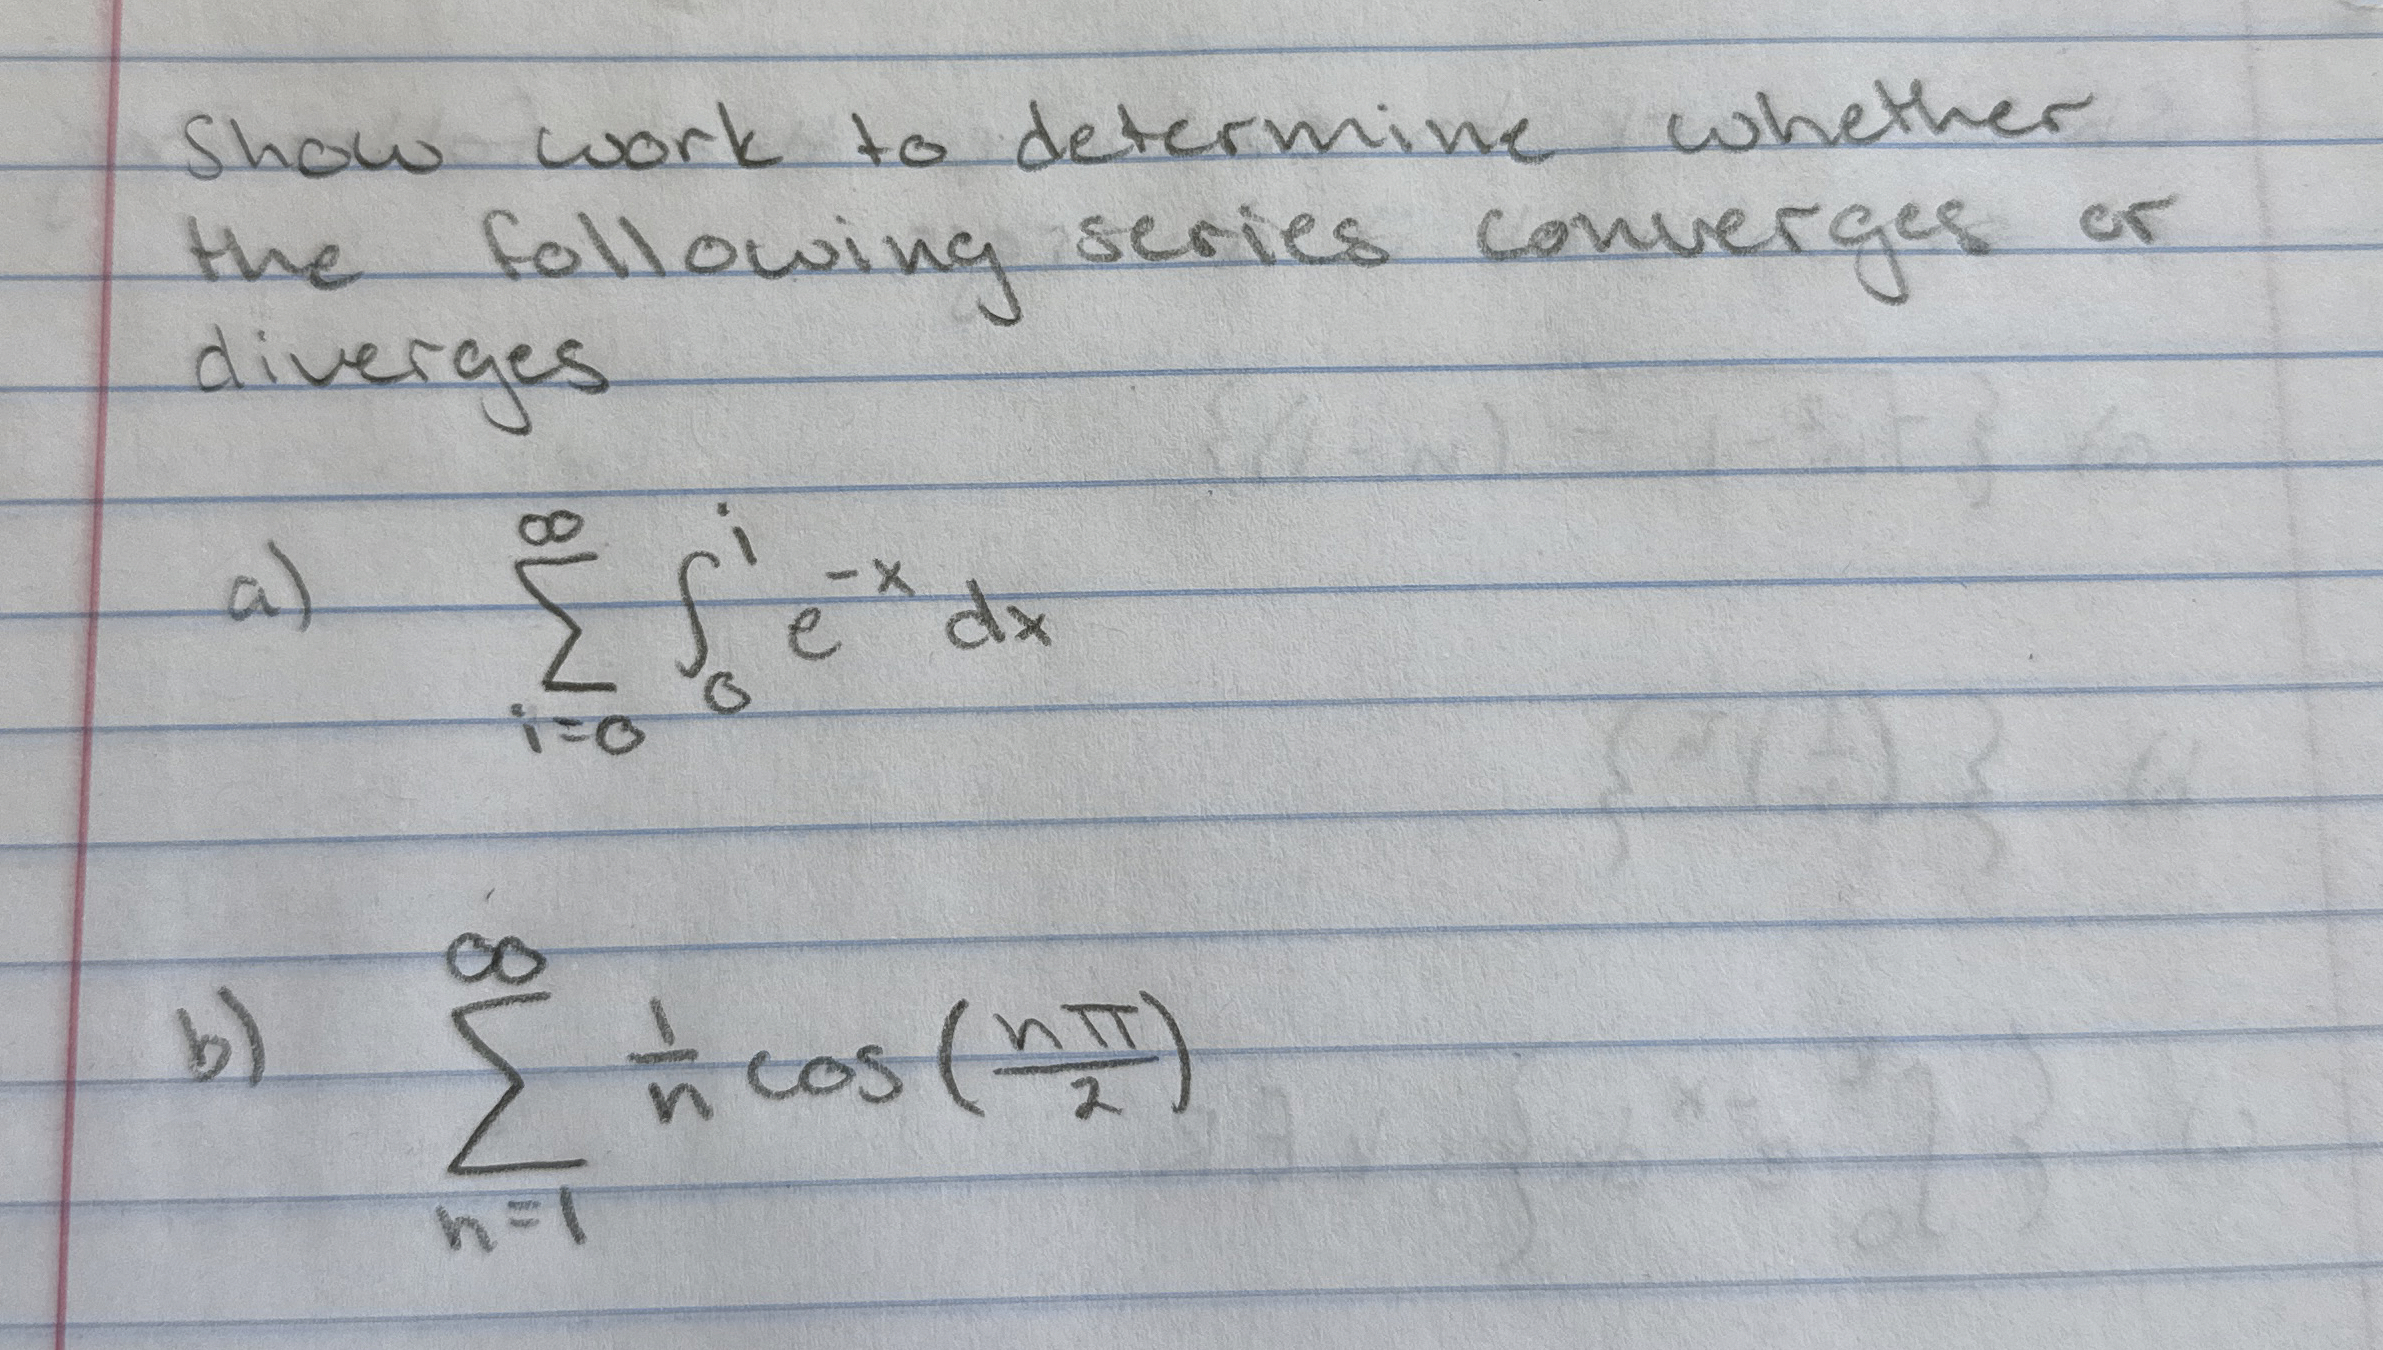 Show work to determine whether
the following series converges or
diverges
a) ∞ ∑ i=0 ∫₀ⁱ e⁻ˣ dx
b) ∞ ∑ n=1 1/n cos (nπ/2)